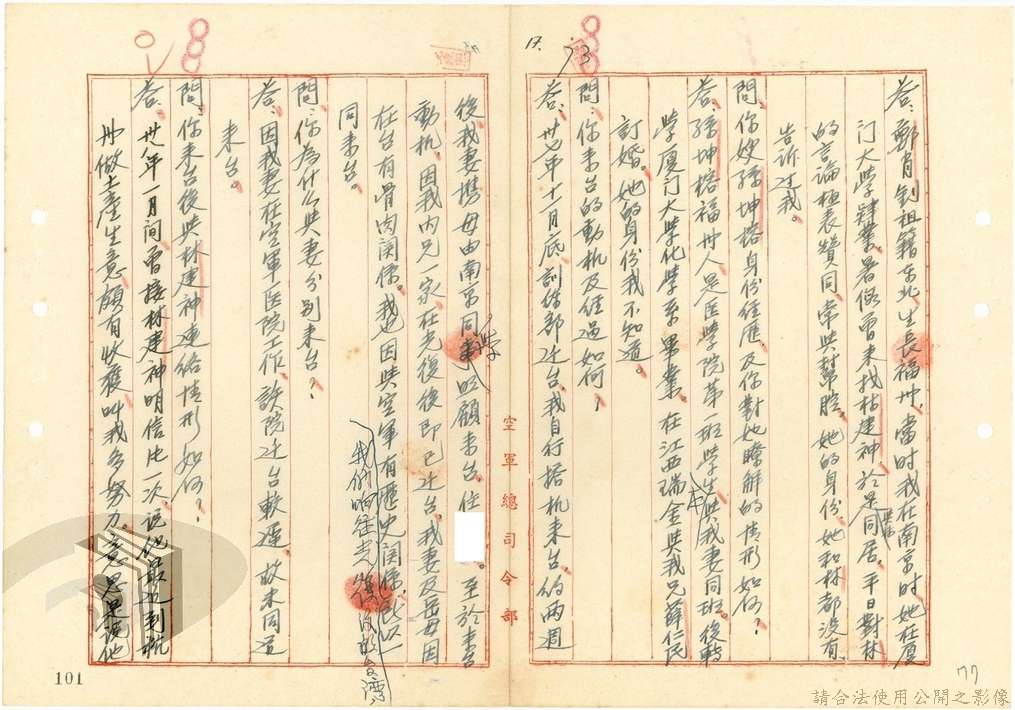 答：鄭肖釗祖籍东北，生長福州，當时我在南京时她在廈
门大学肄業，暑假曾来找林建神於是同居，平日對林
的言論極表贊同，常共幫腔，她的身份，她和林都没有
告诉过我。
問：你嫂孫坤榕身份经歷，及你對她瞭解的情形如何？
答：孫坤榕福州人是医学院第一班学生与我妻同班，後轉
学廈门大学化学系畢業，在江西瑞金与我兄薛仁民
訂婚。她的身份我不知道。
問：你来台的動机及经過如何？
答：卅七年十一月底訓练部迁台，我自行搭机来台，约两週
後我妻携母由南京同乘 照顧来台，住 。至於来台
動机，因我内兄一家，在光復後即已迁台。我妻及岳母因
在台有骨肉関係。我也因與空軍有歷史関係，所以一
同来台。
我们响往光復後的台灣，
問：你為什么共妻分别来台？
答：因我妻在空軍医院工作，該院迁台較遲，故未同道
来台。
問：你来台後與林建神連絡情形如何？
答：卅八年一月间曾接林建神明信片一次，说他最近到杭
州做土産生意，頗有收穫，叫我多努力。意思是说他
空軍總司令部
17.
73
77
101
請合法使用公開之影像